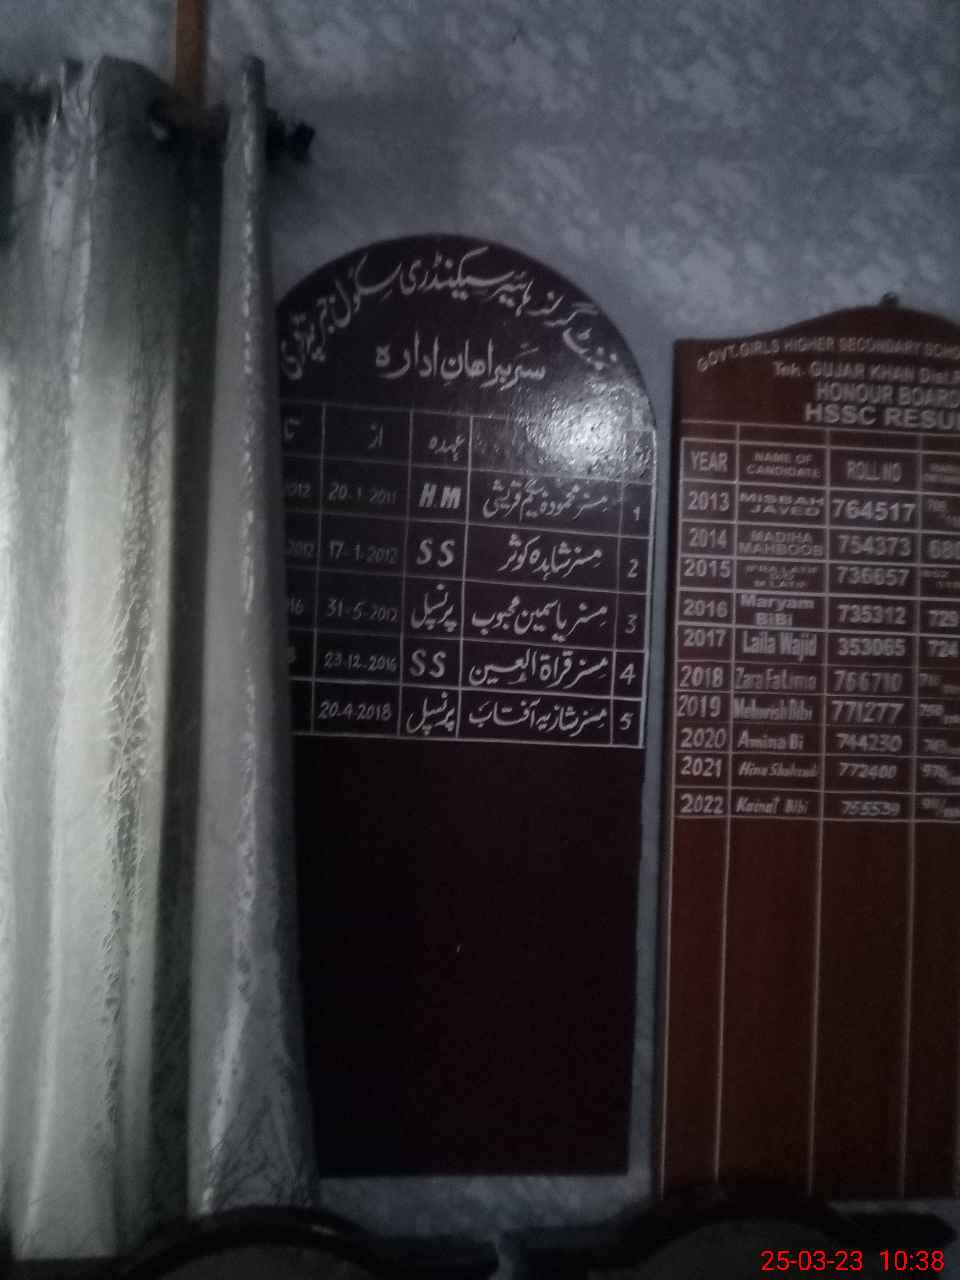 گرلز ہائیر سیکنڈری سکول
سربراہان ادارہ
عہدہ از تا
1 مسز محمودہ بیگم قریشی HM 20-1-2011 2012
2 مسز شاہدہ کوثر SS 17-1-2012 2012
3 مسز یاسمین محبوب پرنسپل 31-5-2012 16
4 مسز قراۃ العین SS 23-12-2016
5 مسز شازیہ آفتاب پرنسپل 20-4-2018
GOVT. GIRLS HIGHER SECONDARY
Teh. GUJAR KHAN
HONOUR BOARD
HSSC
YEAR NAME OF CANDIDATE ROLL NO
2013 MISBAH JAVED 764517
2014 MADIHA MAHBOOB 754373
2015 736657
2016 Maryam BiBi 735312 729
2017 Laila Wajid 353065 724
2018 Zara Fatima 766710
2019 Mehwish Bibi 771277
2020 Amina Bi 744230
2021 Hina Shahzad 772400
2022 Kainat Bibi 755539
25-03-23 10:38